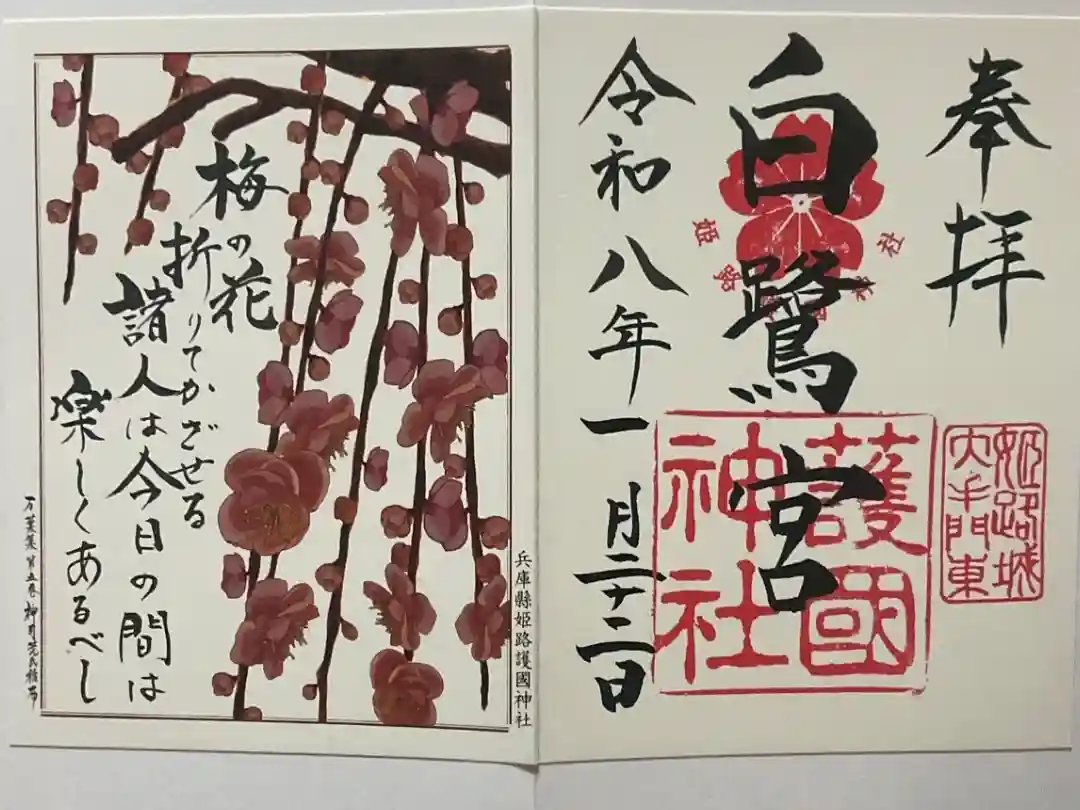 奉拝
姫路城
大手門東
白鷺宮
護國
神社
令和八年一月二十二日
兵庫縣姫路護國神社
梅の花
折りてかざせる
諸人は今日の間は
楽しくあるべし
万葉集 第五巻